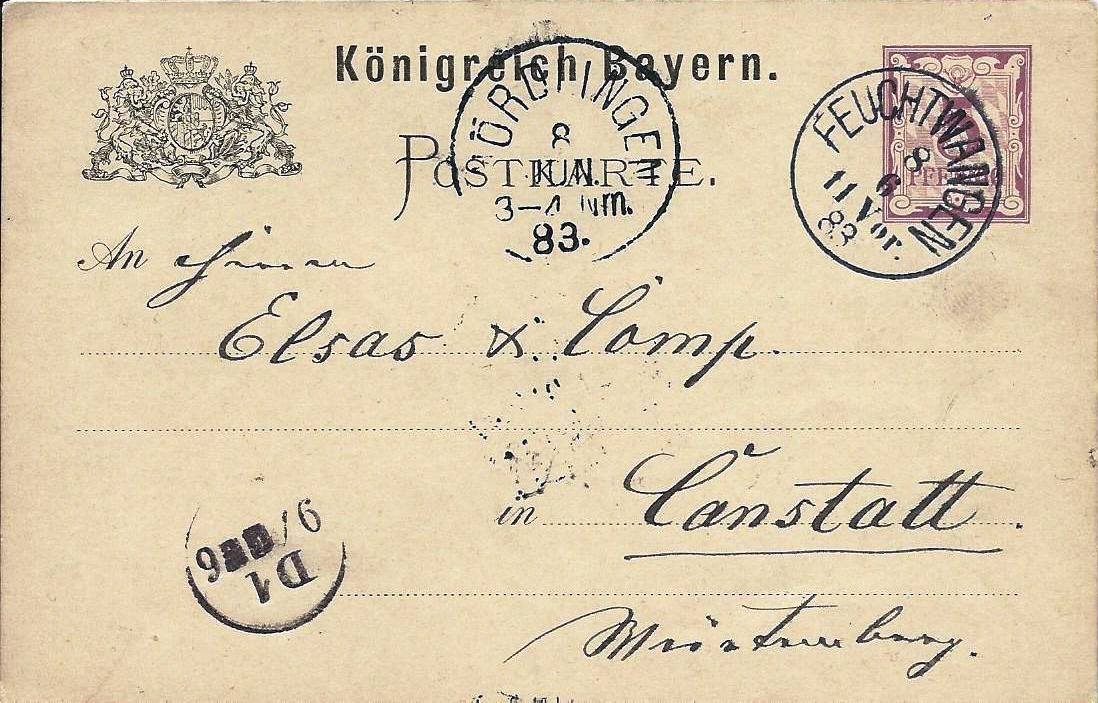 Königreich Bayern.
POSTKARTE.
ÖRDLINGEN
8
JUN.
3-4 Nm.
83.
FEUCHTWANGEN
8
6
11 Vor.
83
An Herren
Elsas & Comp.
in Canstatt.
Würtemberg.
9/6
D1